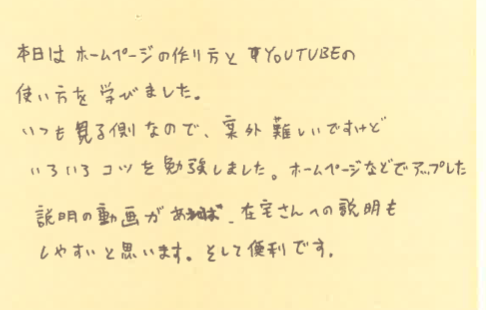 本日はホームページの作り方とYOUTUBEの
使い方を学びました。
いつも見る側なので、案外難しいですけど
いろいろコツを勉強しました。ホームページなどでアップした
説明の動画があれば、在宅さんへの説明も
しやすいと思います。そして便利です。